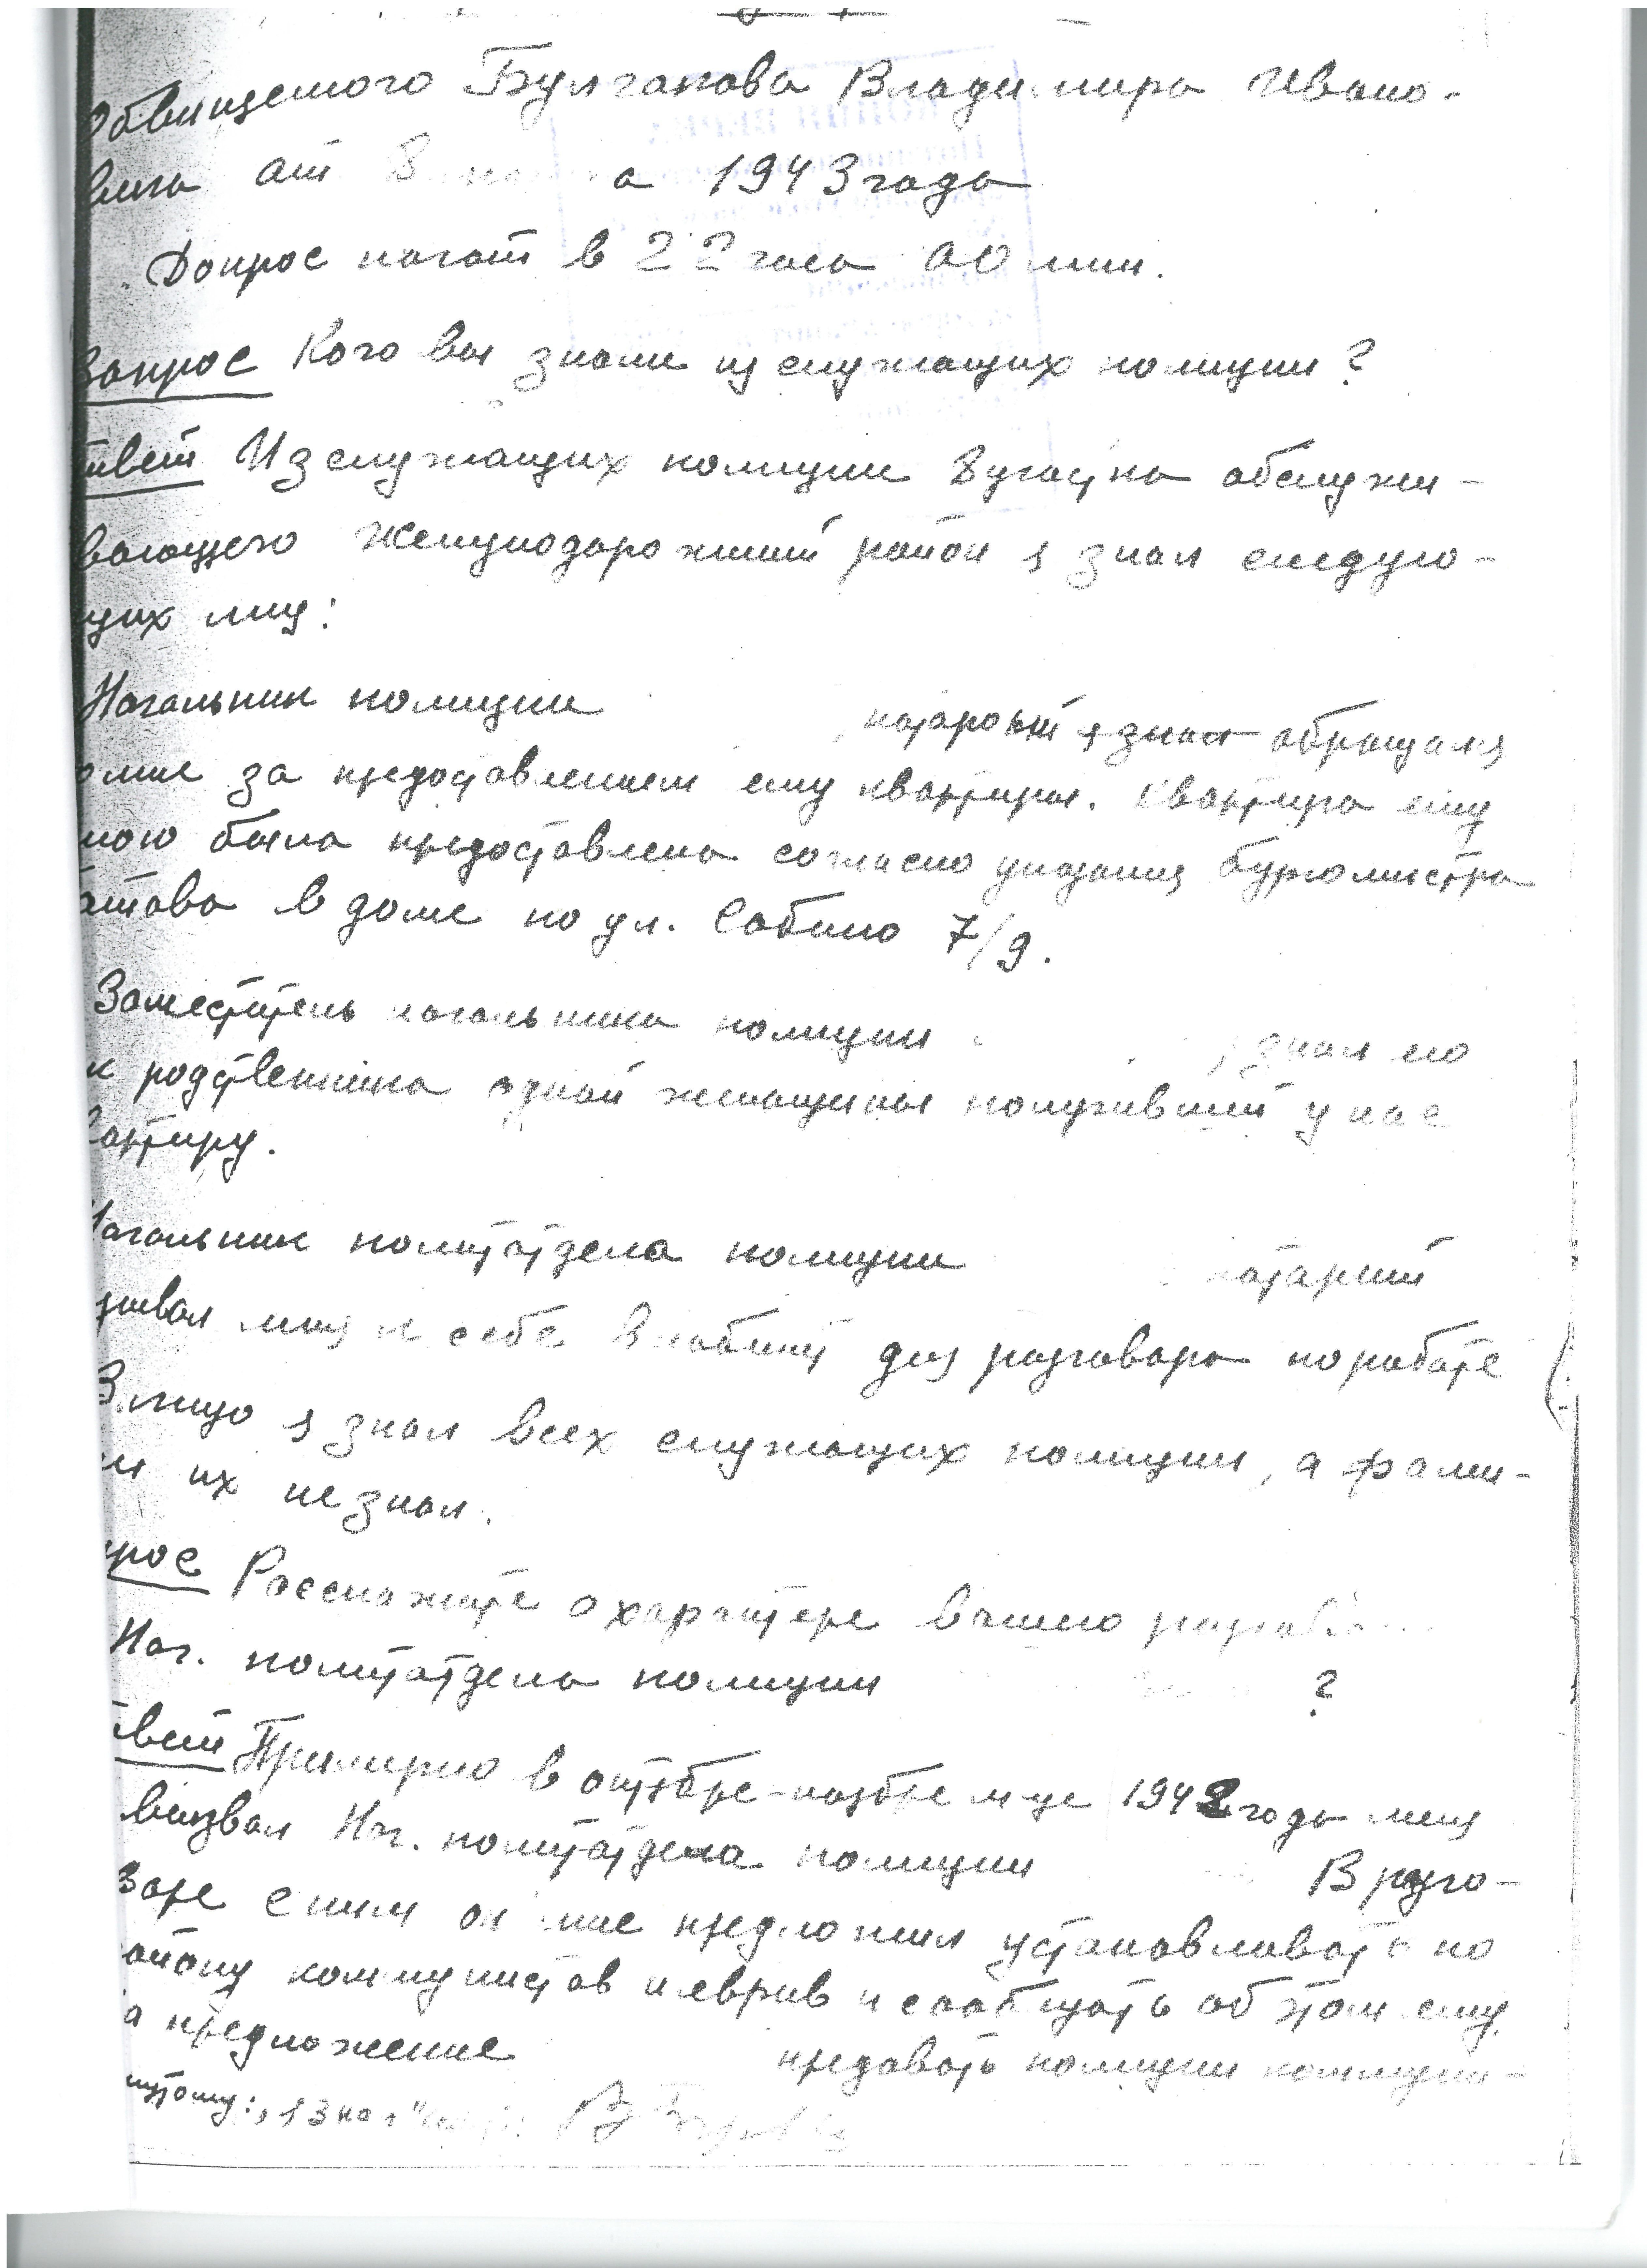 Обвиняемого Булгакова Владимира Ивано-
вича от 8 а 1943 года
Допрос начат в 22 часа 00 мин.
Вопрос Кого вы знали из служащих полиции?
твет Из служащих полиции 8 участка обслужи-
вающего Железнодорожный район я знал следую-
щих лиц:
Начальник полиции который я знал обращался
мне за предоставлением ему квартиры. Квартира ему
мною была предоставлена согласно указания бургомистра
в доме по ул. Сабино 7/9.
Заместитель начальника полиции знал его
к родственника одной женщины получившей у нас
вартиру.
Начальник политотдела полиции который
зывал меня к себе в кабинет для разговора по работе
В лицо я знал всех служащих полиции, а фами-
их не знал.
прос Расскажите о характере вашего
Нач. политотдела полиции ?
твет Примерно в октябре-ноябре м-це 1942 года меня
вызвал Нач. политотдела полиции В разго-
воре с ним он мне предложил установливать по
району коммунистов и еврив и сообщать об этом ему.
а предложение предавать полиции коммуни-